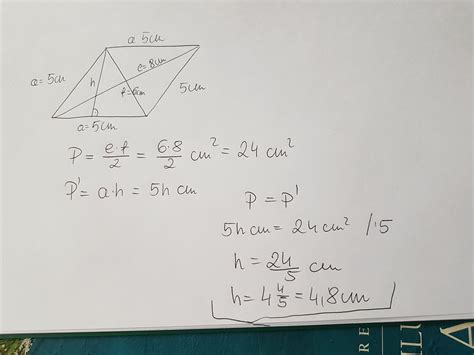 a 5cm
a=5cm
h
e=8cm
f=6cm
5cm
a=5cm
P = e·f/2 = 6·8/2 cm² = 24 cm²
P' = a·h = 5h cm
P = P'
5h cm = 24 cm² /:5
h = 24/5 cm
h = 4 4/5 = 4,8 cm
RE
ILU
A